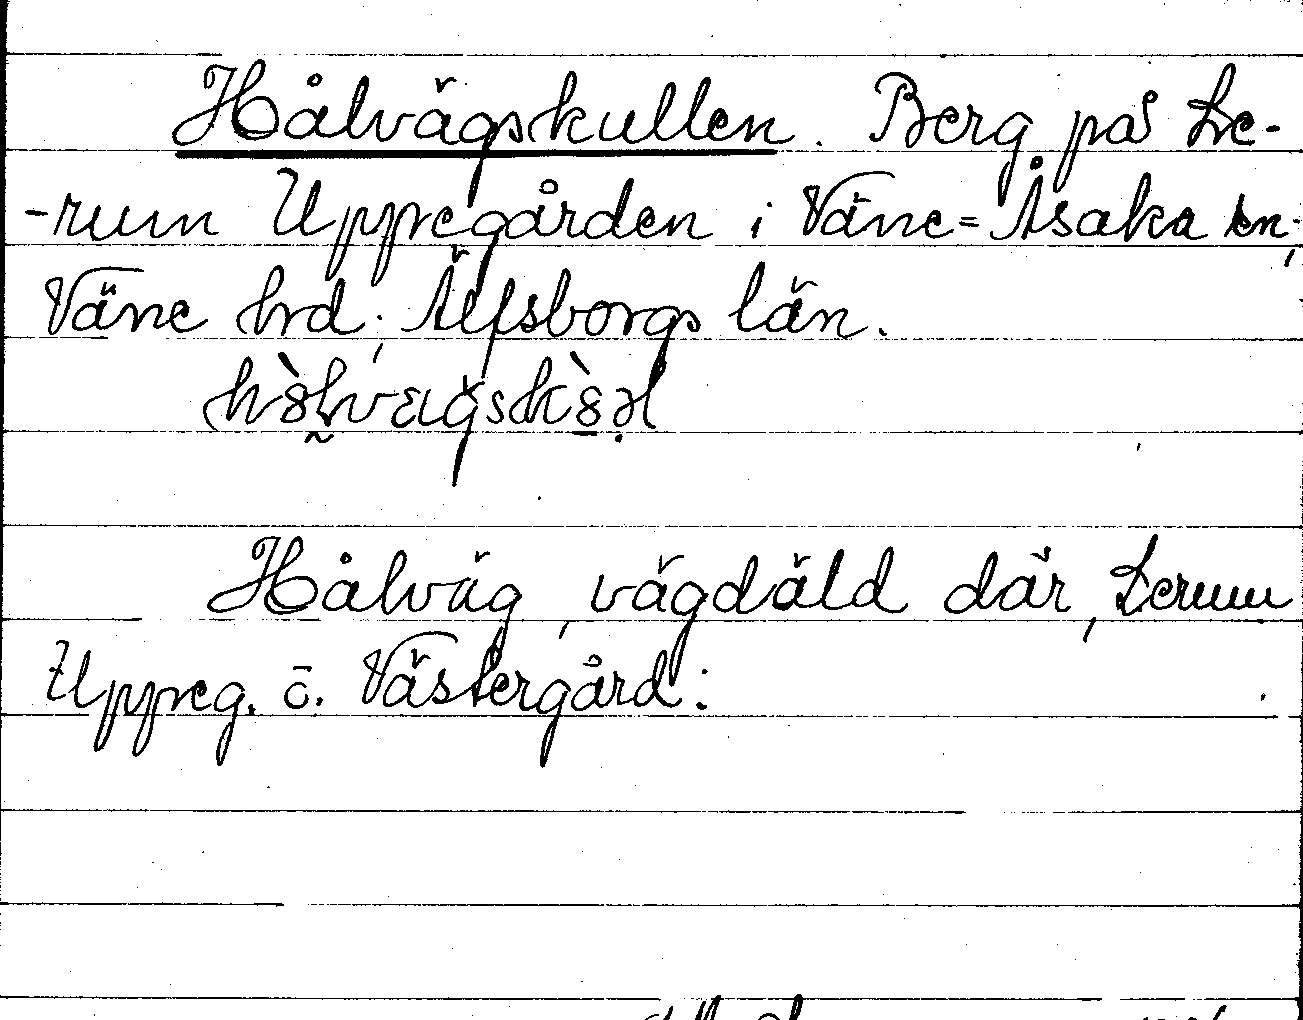 Hålvägskullen. Berg på Le-
-rum Uppregården i Väne=Åsaka sn,
Väne hrd, Älfsborgs län.
Hålväg, vägdäld där, Lerum
Uppreg. o. Västergård: